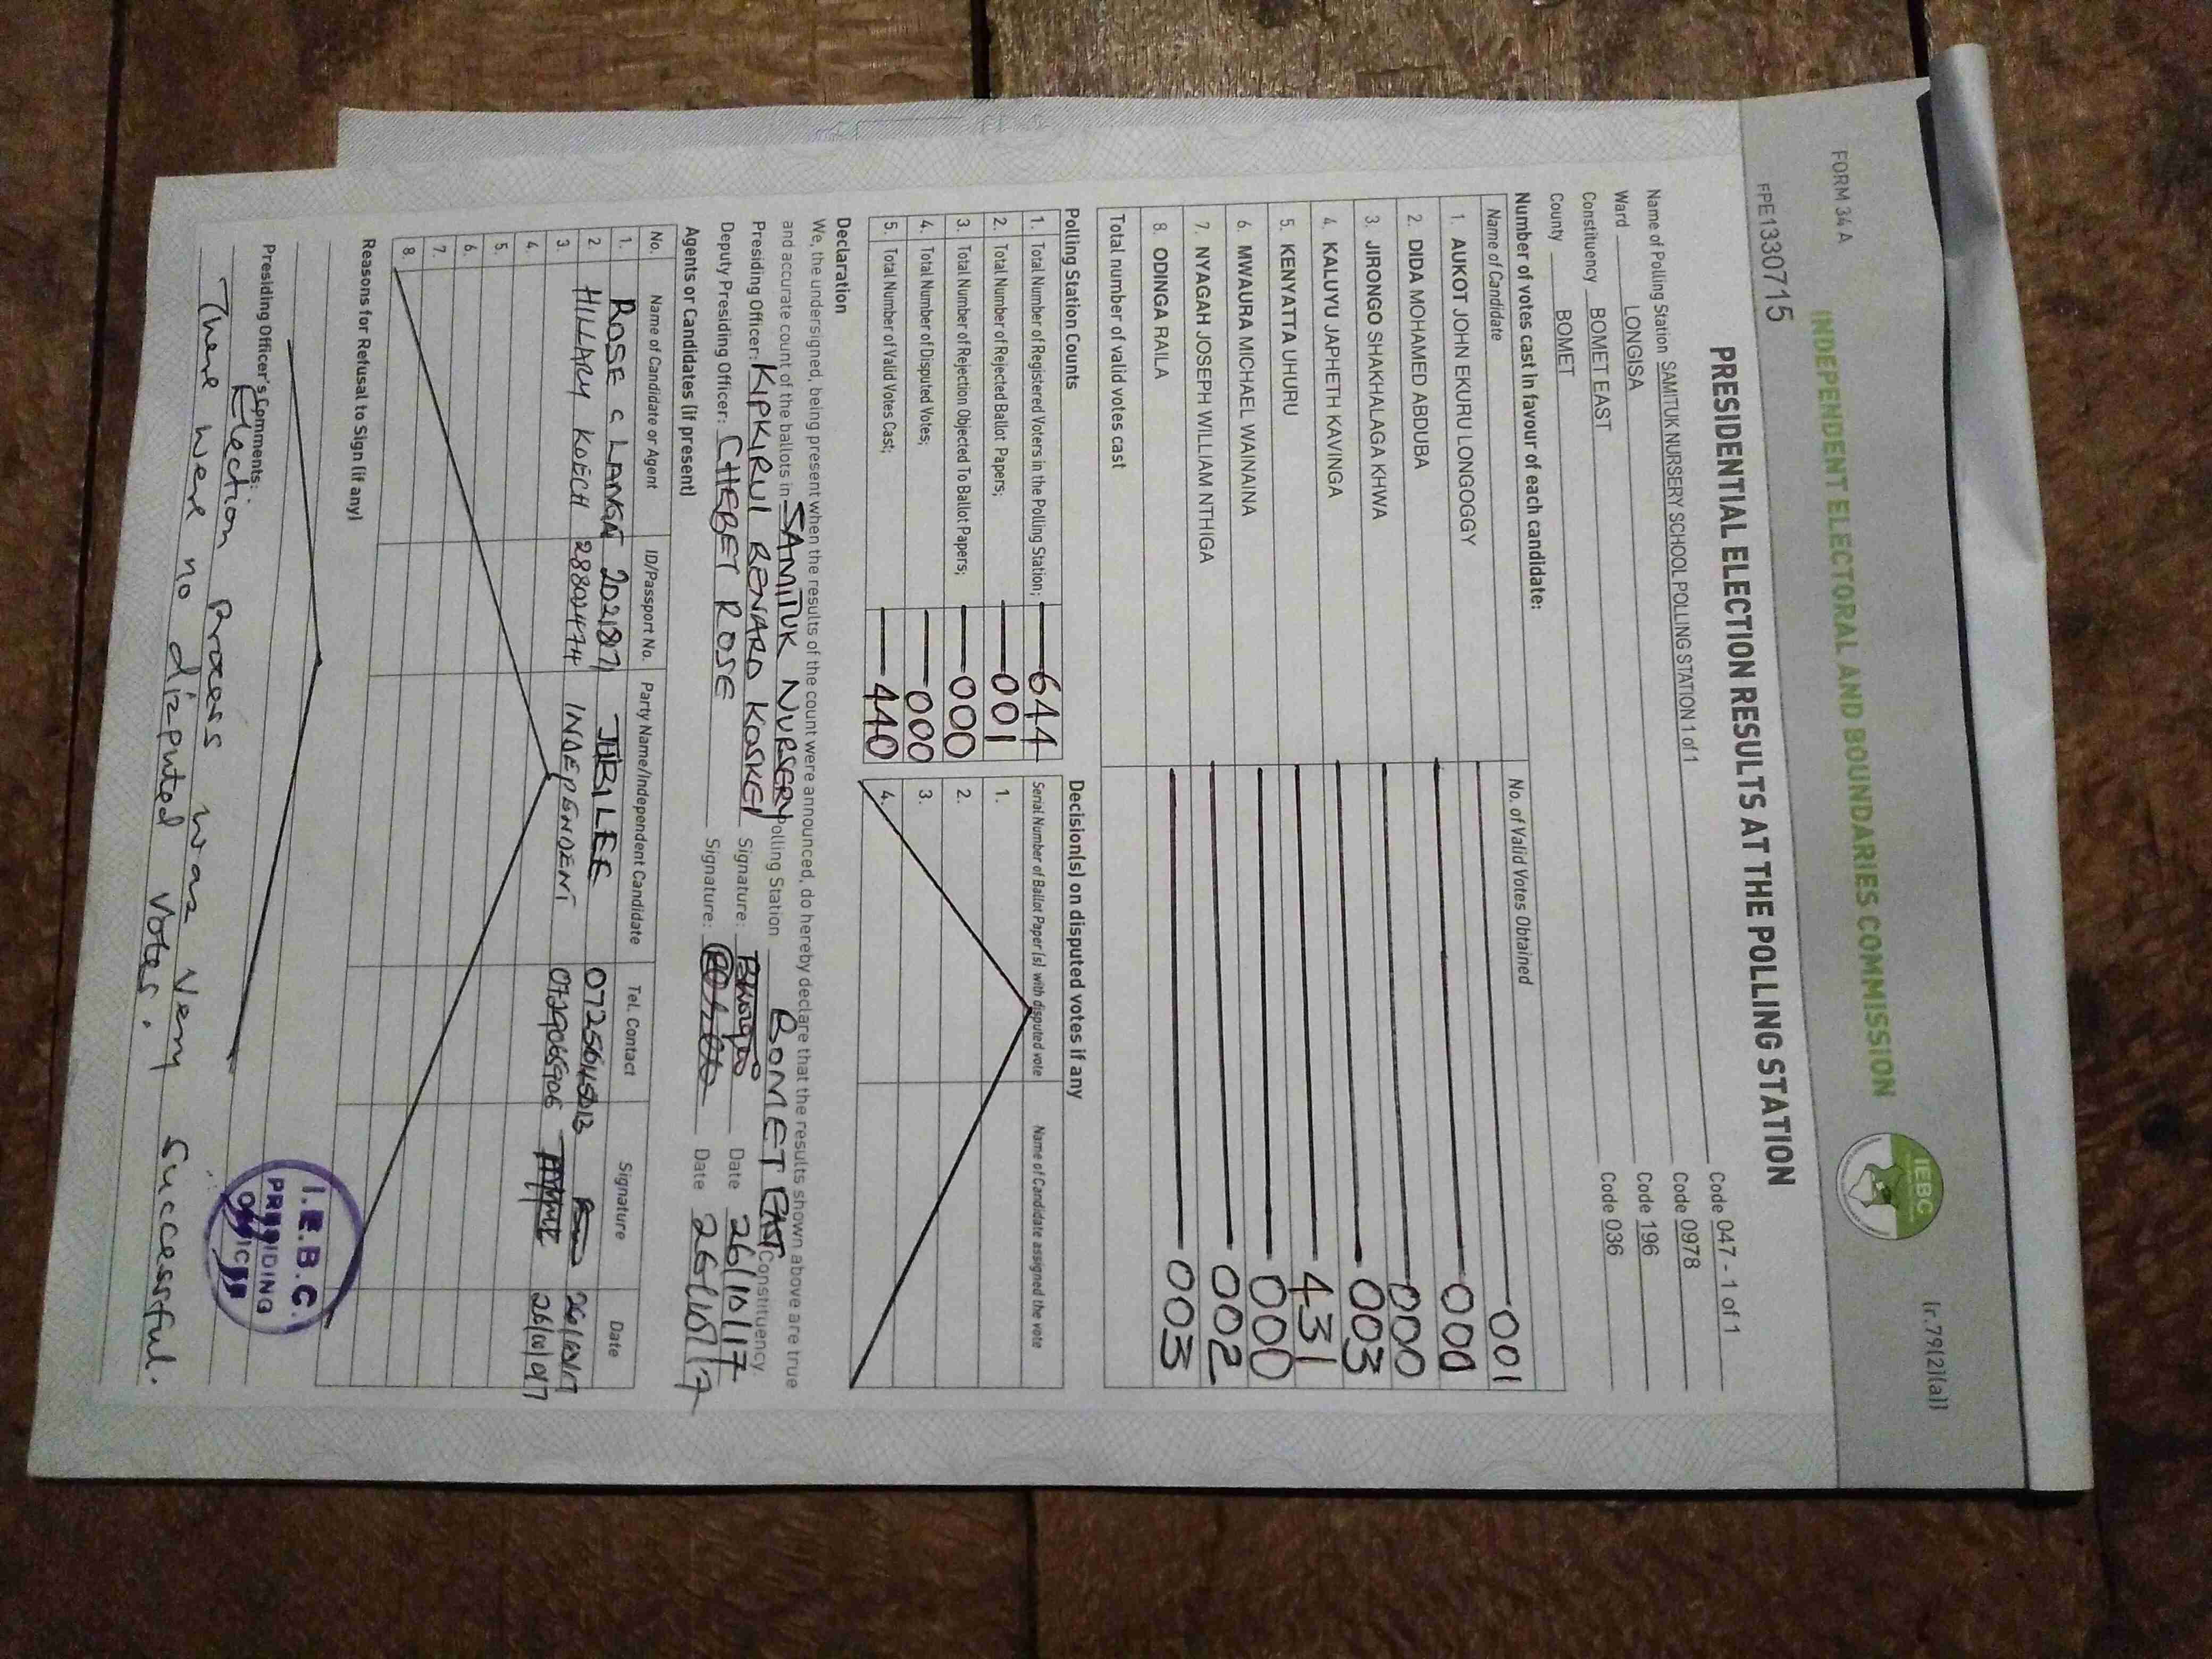 FORM 34 A
(r.79(2)(a))
INDEPENDENT ELECTORAL AND BOUNDARIES COMMISSION
IEBC
FPE1330715
PRESIDENTIAL ELECTION RESULTS AT THE POLLING STATION
Name of Polling Station SAMITUK NURSERY SCHOOL POLLING STATION 1 of 1 Code 047 - 1 of 1
Ward LONGISA Code 0978
Constituency BOMET EAST Code 196
County BOMET Code 036
Number of votes cast in favour of each candidate:
Name of Candidate No. of Valid Votes Obtained
1. AUKOT JOHN EKURU LONGOGGY 001
2. DIDA MOHAMED ABDUBA 000
3. JIRONGO SHAKHALAGA KHWA 000
4. KALUYU JAPHETH KAVINGA 003
5. KENYATTA UHURU 431
6. MWAURA MICHAEL WAINAINA 000
7. NYAGAH JOSEPH WILLIAM NTHIGA 002
8. ODINGA RAILA 003
Total number of valid votes cast
Polling Station Counts
1. Total Number of Registered Voters in the Polling Station; 644
2. Total Number of Rejected Ballot Papers; 001
3. Total Number of Rejection Objected To Ballot Papers; 000
4. Total Number of Disputed Votes; 000
5. Total Number of Valid Votes Cast; 440
Decision(s) on disputed votes if any
Serial Number of Ballot Paper(s) with disputed vote Name of Candidate assigned the vote
1.
2.
3.
4.
Declaration
We, the undersigned, being present when the results of the count were announced, do hereby declare that the results shown above are true
and accurate count of the ballots in SAMITUK NURSERY Polling Station BOMET EAST Constituency
Presiding Officer: KIPKIRUI BENARD KOSKEI Signature: Date 26/10/17
Deputy Presiding Officer: CHEBET ROSE Signature: Date 26/10/17
Agents or Candidates (if present)
No. Name of Candidate or Agent ID/Passport No. Party Name/Independent Candidate Tel. Contact Signature Date
1. ROSE C LANGAT JUBILEE
2. HILLARY KOECH INDEPENDENT
3.
4.
5.
6.
7.
8.
Reasons for Refusal to Sign (if any)
Presiding Officer's Comments:
Election process was very successful.
There were no disputed votes.
I.E.B.C.
PRESIDING
OFFICER